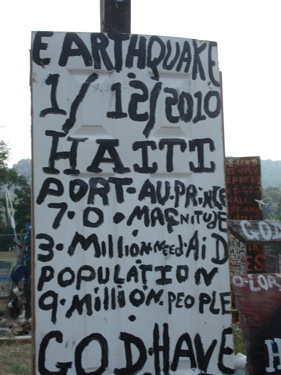 EARTHQUAKE
1/12/2010
HAITI
PORT-AU-PRINCE
7.0.MAGNITUDE
3.MILLION.NEED.AID
POPULATION
9.MILLION.PEOPLE
GOD.HAVE
GOD